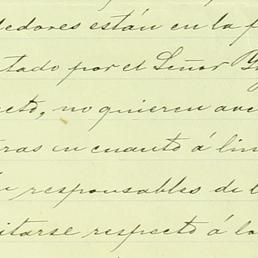 dedores están en la p
tado por el Señor
cto, no quieren ave
ras en cuanto á lin
responsables de l
itarse respecto á la